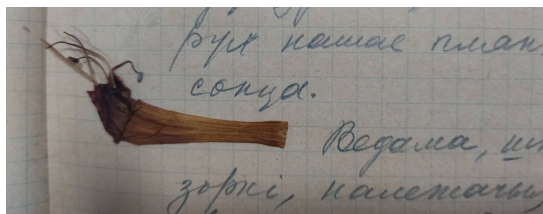 рух нашае план
сонца.
Ведама, 
зоркі, належачы